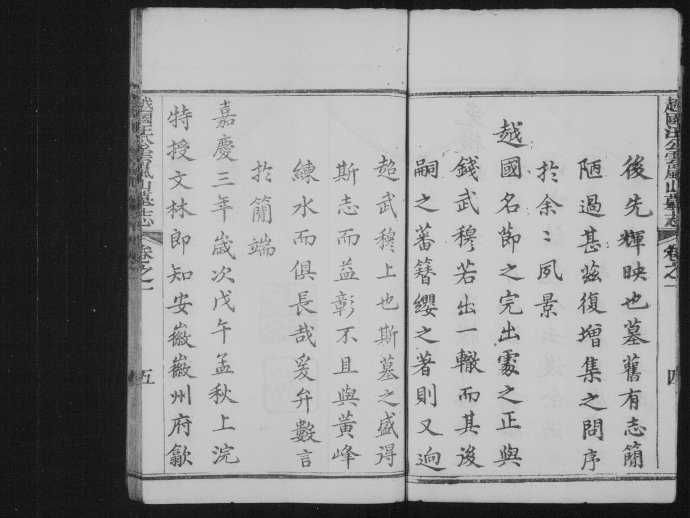 後先輝映也墓舊有志簡
陋過甚茲復增集之問序
於余〻夙景
越國名節之完出處之正與
錢武穆若出一轍而其後
嗣之蕃簪纓之著則又逈
超武穆上也斯墓之盛得
斯志而益彰不且與黃峰
練水而俱長哉爰弁數言
於簡端
嘉慶三年歲次戊午孟秋上浣
特授文林郎知安徽徽州府歙
越國汪公雲嵐山墓志
卷之一
四
越國汪公雲嵐山墓志
卷之一
五